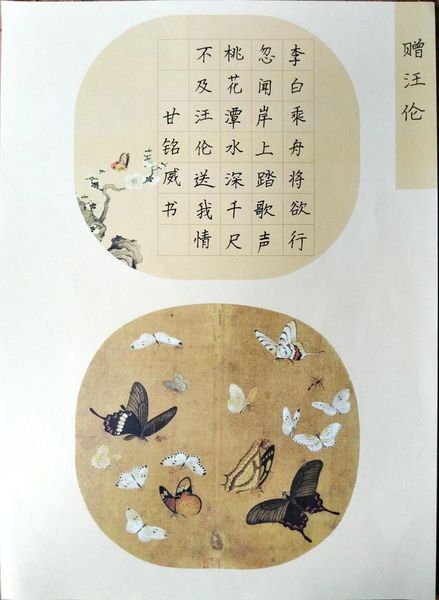 赠汪伦
李白乘舟将欲行
忽闻岸上踏歌声
桃花潭水深千尺
不及汪伦送我情
甘铭威书